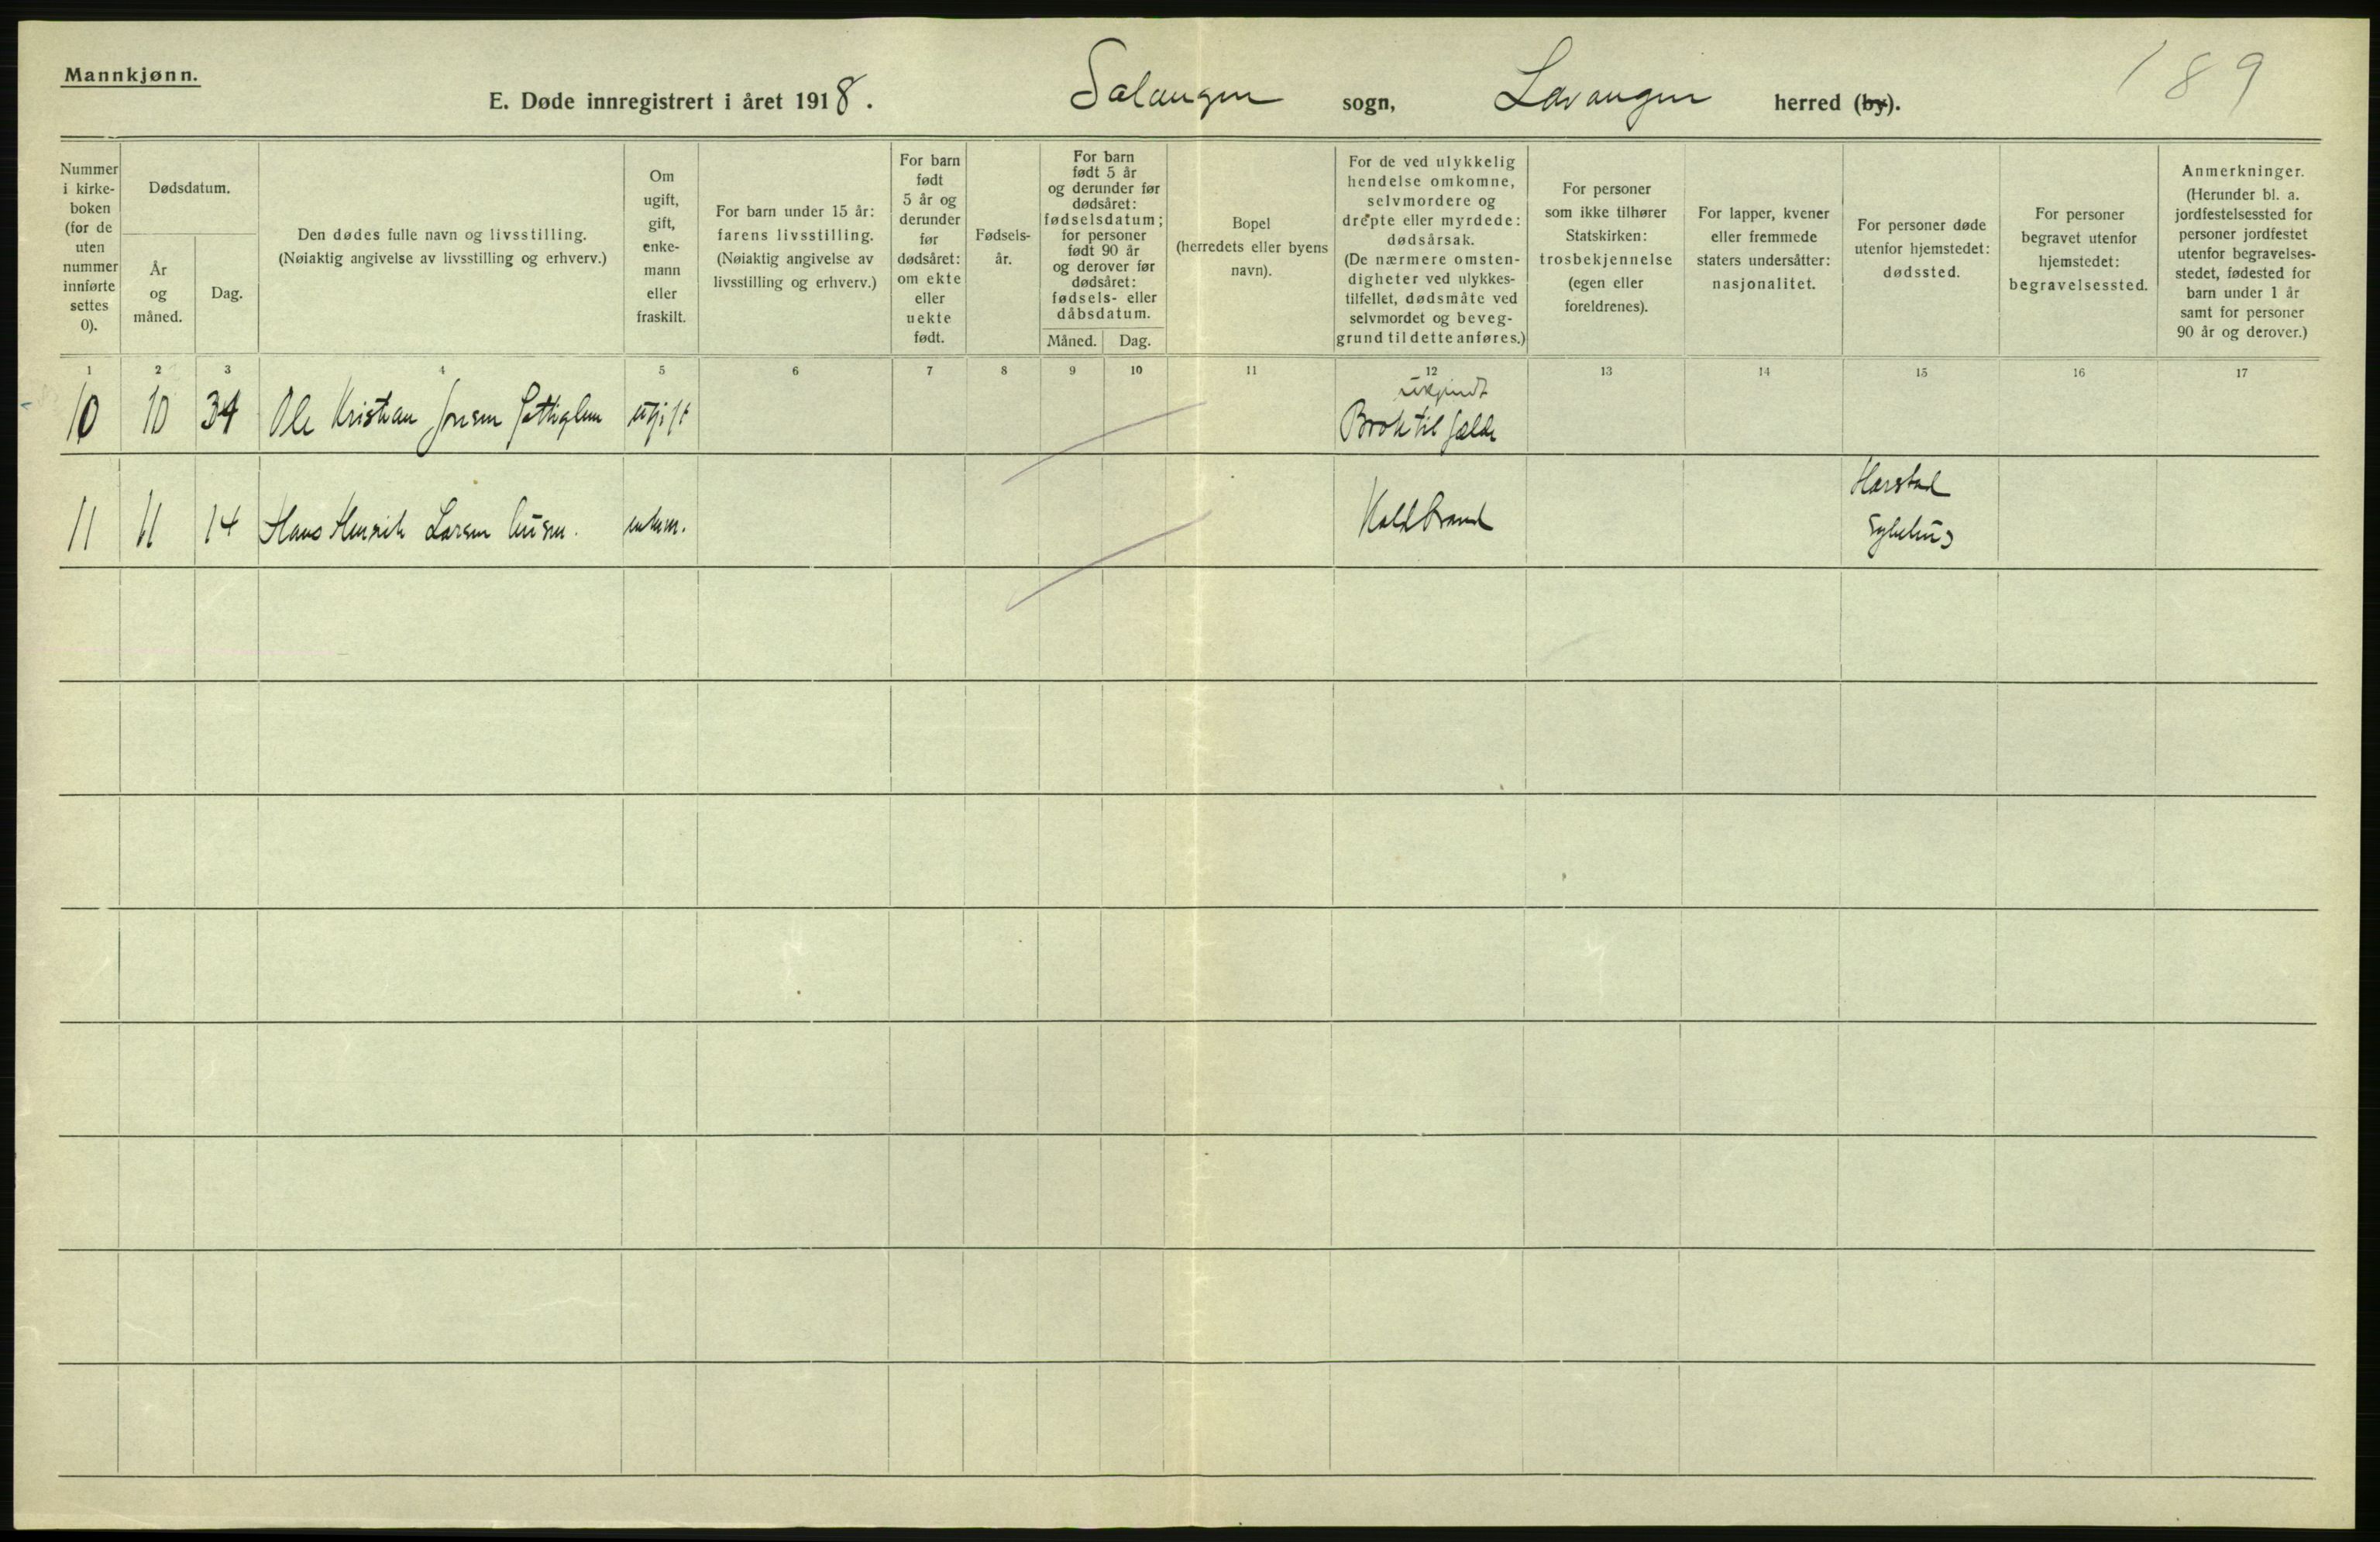 Mannkjønn.
E. Døde innregistrert i året 1918. Salangen sogn, Lavangen herred (by).
189
Nummer
i kirke-
boken
(for de
uten
nummer
innførte
settes
0).
Dødsdatum.
År
og
måned.
Dag.
Den dødes fulle navn og livsstilling.
(Nøiaktig angivelse av livsstilling og erhverv.)
Om
ugift,
gift,
enke-
mann
eller
fraskilt.
For barn under 15 år:
farens livsstilling.
(Nøiaktig angivelse av
livsstilling og erhverv.)
For barn
født
5 år og
derunder
før
dødsåret:
om ekte
eller
uekte
født.
Fødsels-
år.
For barn
født 5 år
og derunder før
dødsåret:
fødselsdatum;
for personer
født 90 år
og derover før
dødsåret:
fødsels- eller
dåbsdatum.
Måned. Dag.
Bopel
(herredets eller byens
navn).
For de ved ulykkelig
hendelse omkomne,
selvmordere og
drepte eller myrdede:
dødsårsak.
(De nærmere omsten-
digheter ved ulykkes-
tilfellet, dødsmåte ved
selvmordet og beveg-
grund til dette anføres.)
For personer
som ikke tilhører
Statskirken:
trosbekjennelse
(egen eller
foreldrenes).
For lapper, kvener
eller fremmede
staters undersåtter:
nasjonalitet.
For personer døde
utenfor hjemstedet:
dødssted.
For personer
begravet utenfor
hjemstedet:
begravelsessted.
Anmerkninger.
(Herunder bl. a.
jordfestelsessted for
personer jordfestet
utenfor begravelses-
stedet, fødested for
barn under 1 år
samt for personer
90 år og derover.)
1 2 3 4 5 6 7 8 9 10 11 12 13 14 15 16 17
ukjendt
10 10 Ole Kristian Jensen ugift Brok til
Harstad
11 11 14 Hans Henrik Larsen enkem. Koldbrand
Sykehus